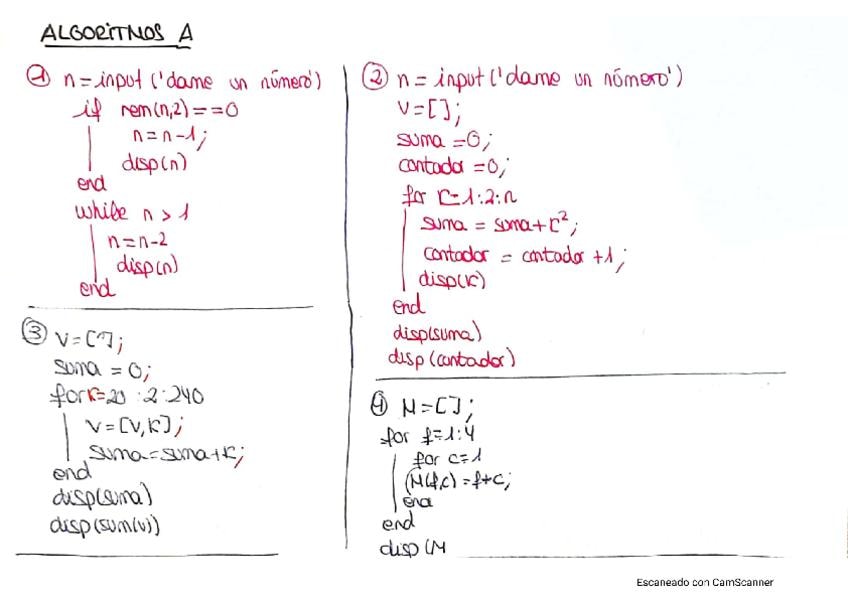 ALGORITMOS A
1 n=input('dame un número')
if rem(n,2)==0
n=n-1;
disp(n)
end
while n>1
n=n-2
disp(n)
end
2 n=input('dame un número')
V=[];
suma=0;
contador=0;
for k=1:2:n
suma=suma+k²;
contador=contador+1;
disp(k)
end
disp(suma)
disp(contador)
3 V=[];
suma=0;
for k=20:2:240
V=[V,k];
suma=suma+k;
end
disp(suma)
disp(sum(v))
4 M=[];
for f=1:4
for c=1
M(f,c)=f+c;
end
end
disp(M
Escaneado con CamScanner